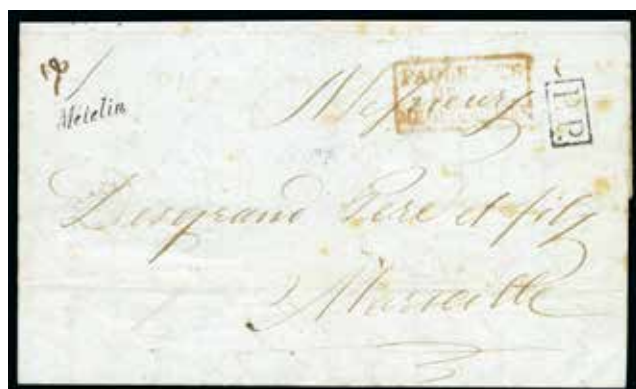 Métélin
PAQUEBOTS
P.P.
Messieurs
Desgrand Père et fils
Marseille